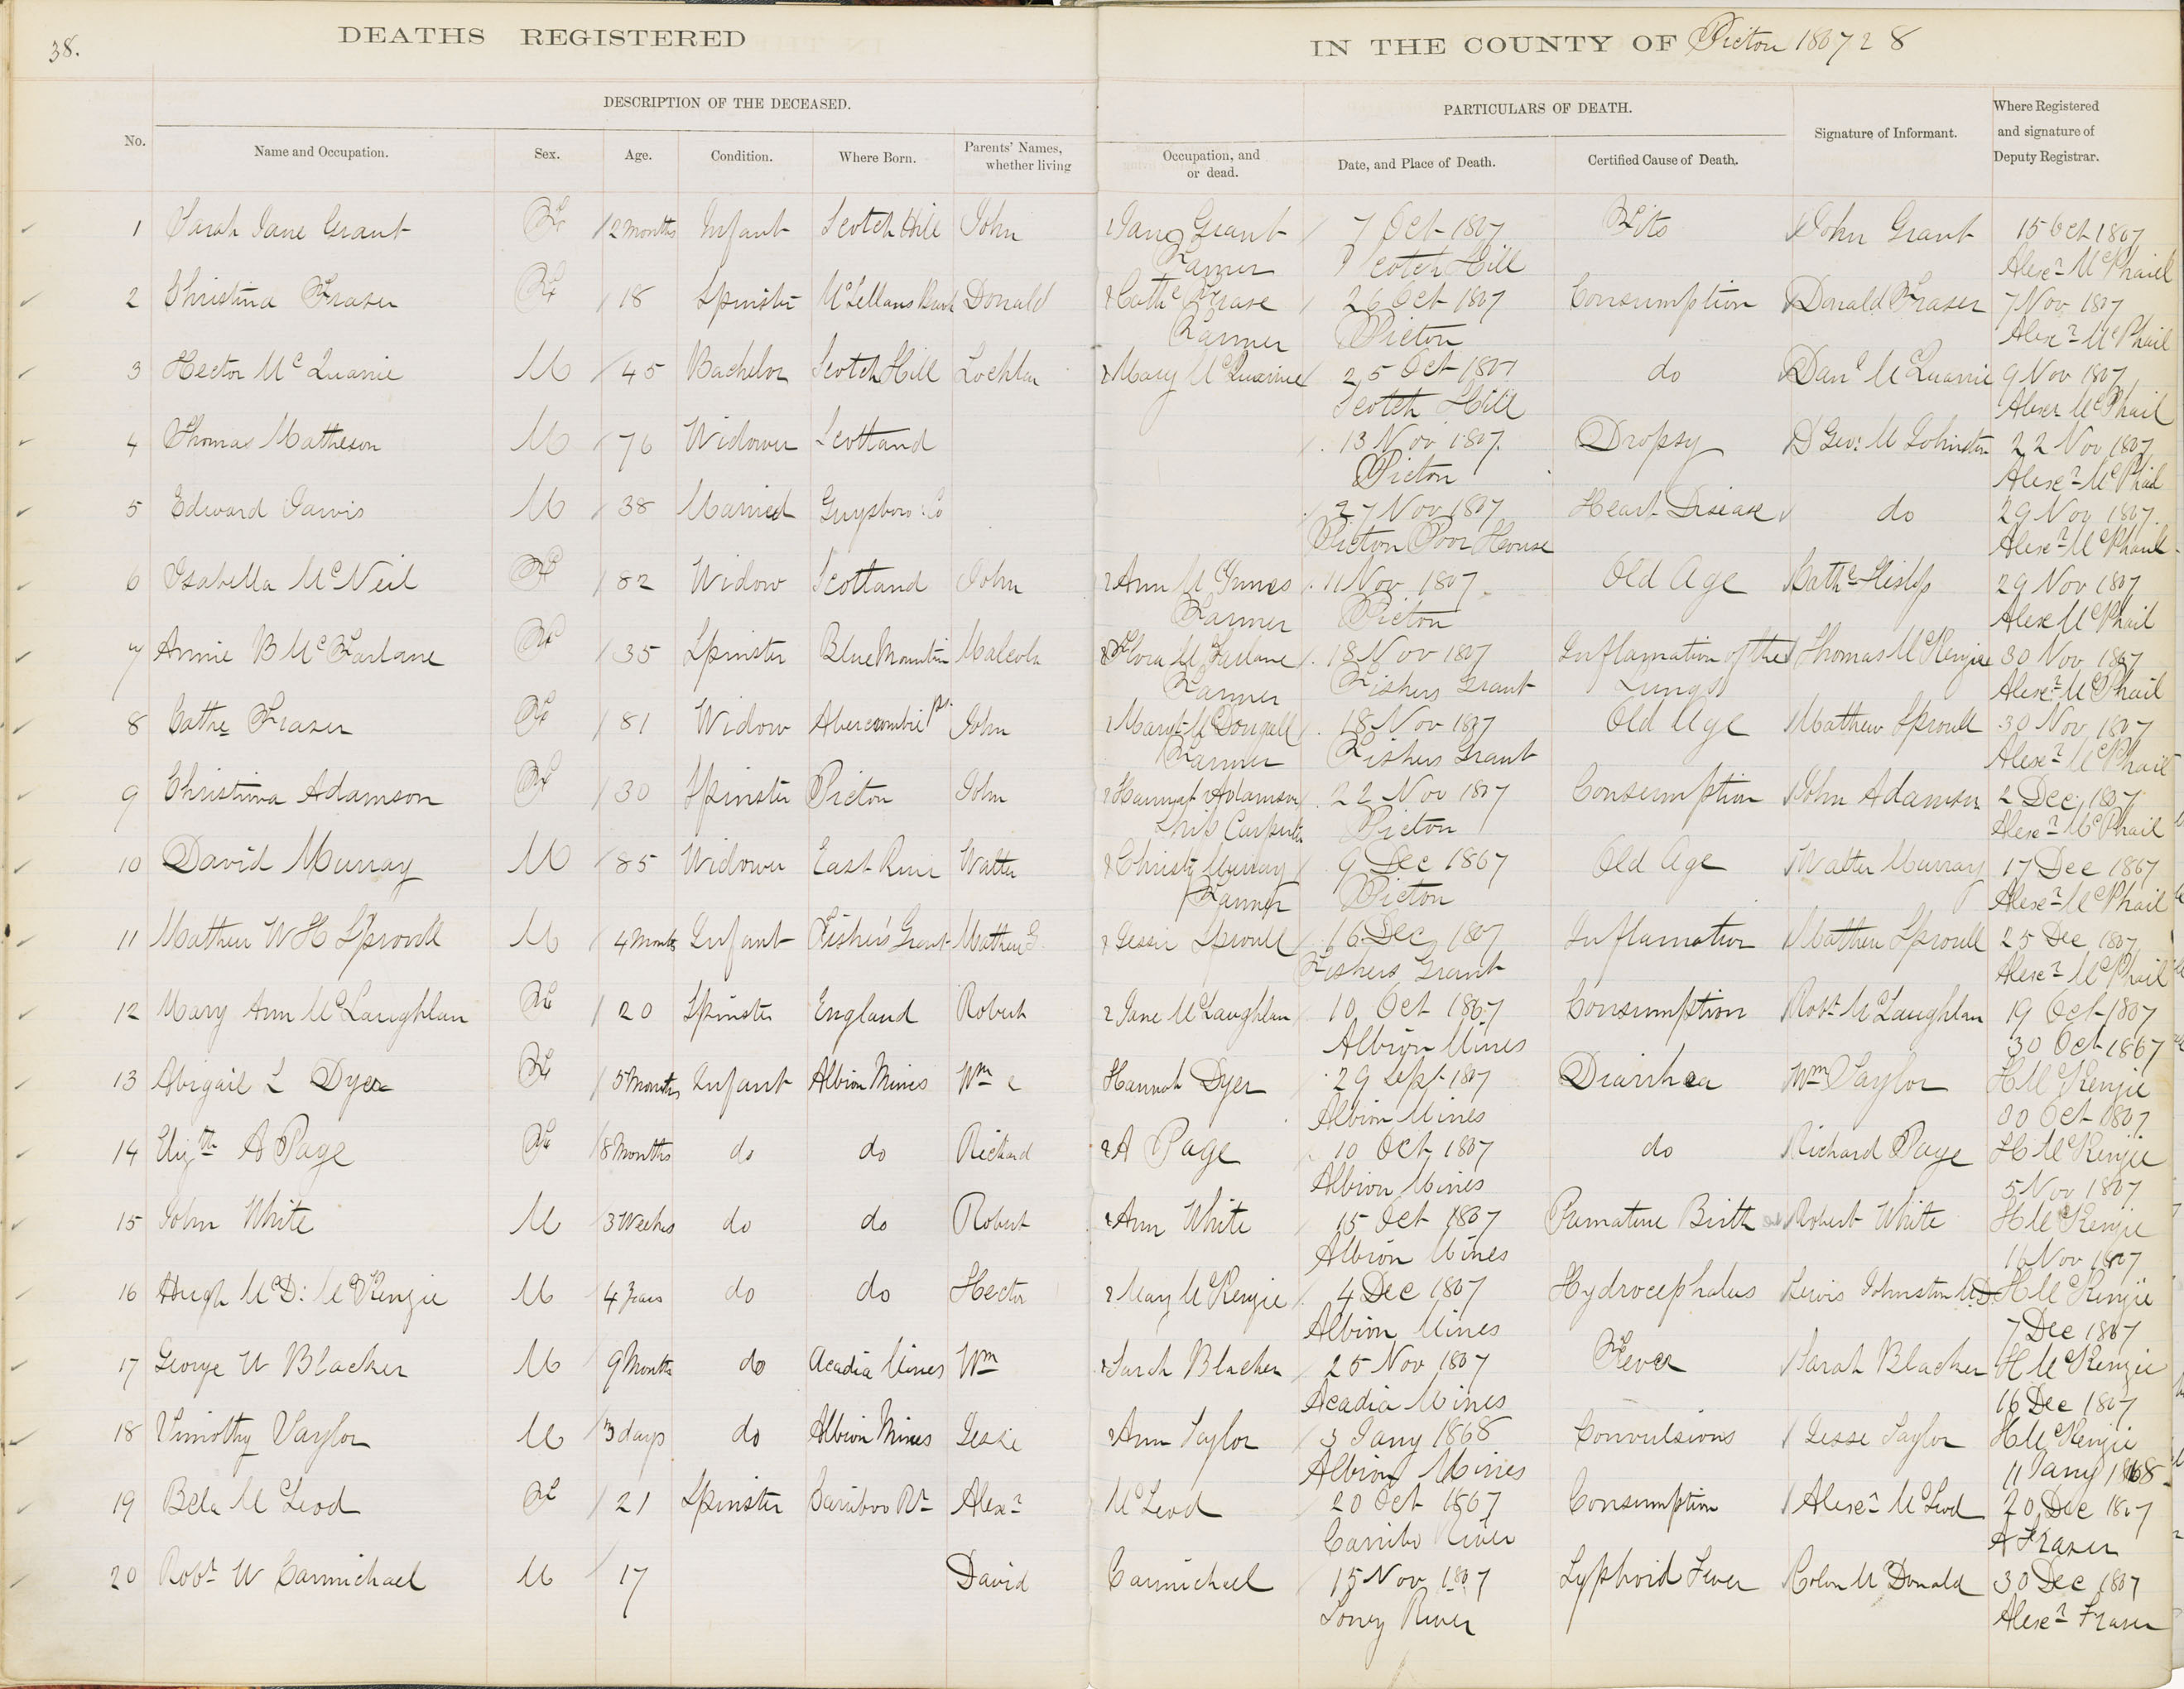 38.
DEATHS REGISTERED IN THE COUNTY OF Picton 1867 & 8
DESCRIPTION OF THE DECEASED. PARTICULARS OF DEATH.
No. Name and Occupation. Sex. Age. Condition. Where Born. Parents' Names, whether living Occupation, and or dead. Date, and Place of Death. Certified Cause of Death. Signature of Informant. Where Registered and signature of Deputy Registrar.
1 Sarah Jane Grant F 2 Months Infant Scotch Hill John & Jane Grant 7 Oct 1867 Fits John Grant 15 Oct 1867
Farmer Scotch Hill Alexr McPhail
2 Christina Fraser F 18 Spinster McLellans Donald & Cathe Fraser 26 Oct 1867 Consumption Donald Fraser 7 Nov 1867
Farmer Picton Alexr McPhail
3 Hector McQuarrie M 45 Bachelor Scotch Hill Lochlan & Mary McQuarrie 25 Oct 1867 do Danl McQuarrie 9 Nov 1867
Scotch Hill Alexr McPhail
4 Thomas Matheson M 76 Widower Scotland 13 Nov 1867. Dropsy Dr Geo: M Johnston 22 Nov 1867
Picton Alexr McPhail
5 Edward Jarvis M 38 Married Guysboro Co 27 Nov 1867 Heart Disease do 29 Nov 1867.
Picton Poor House Alexr McPhail
6 Isabella McNeil F 82 Widow Scotland John & Ann McInnes 11 Nov 1867. Old Age Cathe Hislop 29 Nov 1867
Farmer Picton Alexr McPhail
7 Annie B McFarlane F 35 Spinster Blue Mountin Malcolm & Flora McFarlane 18 Nov 1867 Inflamation of the Thomas McKenzie 30 Nov 1867
Farmer Fishers Grant Lungs Alexr McPhail
8 Cathe Fraser F 81 Widow Abercrombie Pt. John & Margt McDougall 18 Nov 1867 Old Age Mathew Sproull 30 Nov 1867
Farmer Fishers Grant Alexr McPhail
9 Christina Adamson F 30 Spinster Picton John & Hannah Adamson 22 Nov 1867 Consumption John Adamson 2 Dec, 1867
Ship Carpenter Picton Alexr McPhail
10 David Murray M 85 Widower East River Walter & Christy Murray 9 Dec 1867 Old Age Walter Murray 17 Dec 1867
Farmer Picton Alexr McPhail
11 Mathew W H Sproull M 4 Months Infant Fisher's Grant Mathew G. & Jessie Sproull 16 Dec, 1867 Inflamation Mathew Sproull 25 Dec 1867
Fishers Grant Alexr McPhail
12 Mary Ann McLaughlan F 20 Spinster England Robert & Jane McLaughlan 10 Oct 1867 Consumption Robt McLaughlan 19 Oct 1867
Albion Mines 30 Oct 1867
13 Abigail L Dyer F 5 Months Infant Albion Mines Wm & Hannah Dyer 29 Sept 1867 Diarrhea Wm Taylor H McKenzie
Albion Mines 30 Oct 1867
14 Elizth A Page F 8 Months do do Richard & A Page 10 Oct, 1867 do Richard Page H McKenzie
Albion Mines 5 Nov 1867
15 John White M 3 Weeks do do Robert & Ann White 15 Oct 1867 Premature Birth Robert White H McKenzie
Albion Mines 16 Nov 1867
16 Hugh McD: McKenzie M 4 Years do do Hector & Mary McKenzie 4 Dec 1867 Hydrocephalus Lewis Johnston M.D. H McKenzie
Albion Mines 7 Dec 1867
17 George W Blacker M 9 Months do Acadia Mines Wm & Sarah Blacker 25 Nov 1867 Fever Sarah Blacker H McKenzie
Acadia Mines 16 Dec 1867
18 Timothy Taylor M 3 days do Albion Mines Jesse & Ann Taylor 3 Jany 1868 Convulsions Jesse Taylor H McKenzie
Albion Mines 11 Jany 1868
19 Bela McLeod F 21 Spinster Cariboo Rr Alexr McLeod 20 Oct 1867 Consumption Alexr McLeod 20 Dec 1867
Carribo River A Fraser
20 Robt W Carmichael M 17 David Carmichael 15 Nov 1867 Typhoid Fever Colon McDonald 30 Dec 1867
Toney River Alexr Fraser